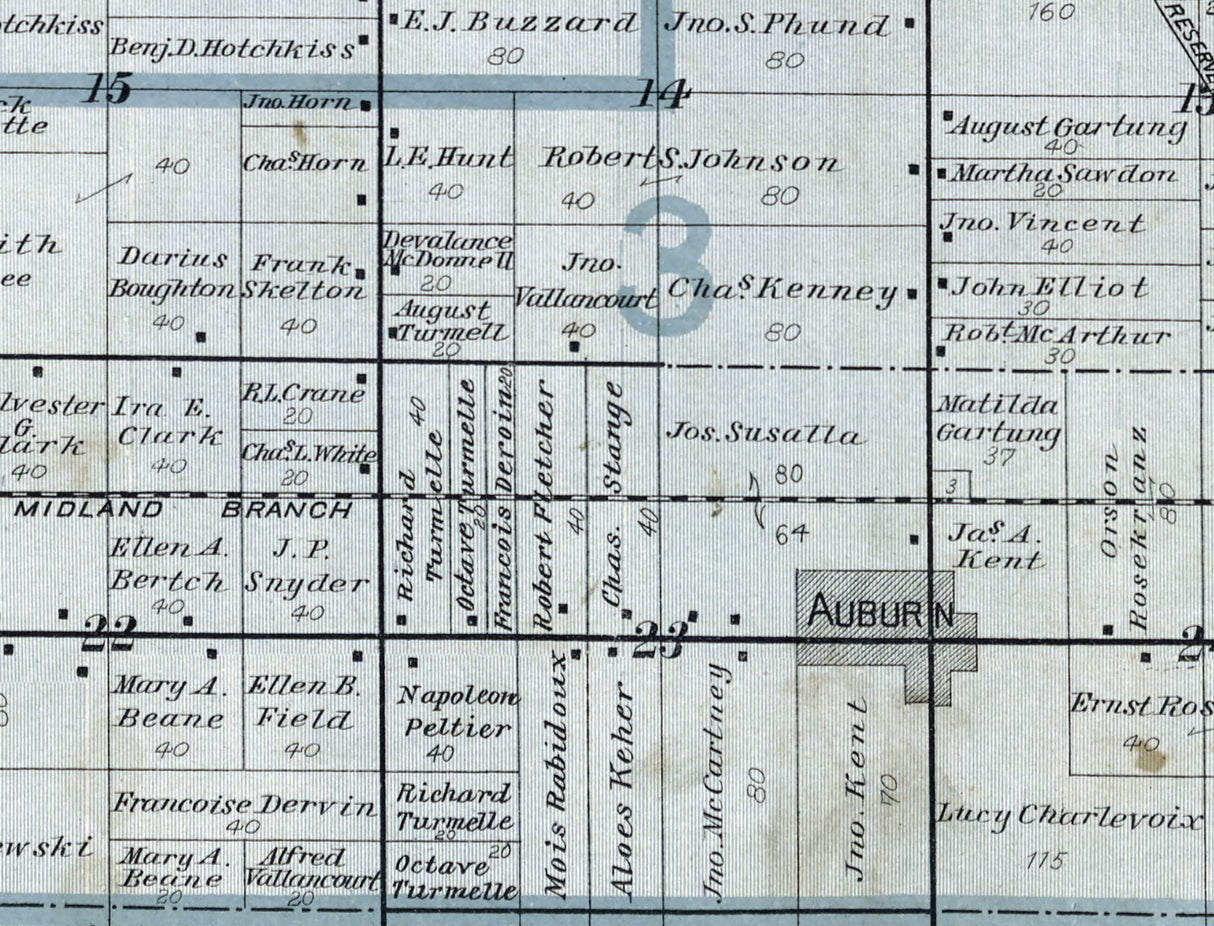 tchkiss
Benj.D.Hotchkiss
E.J. Buzzard
80
Jno.S.Phund
80
160
RESERVE
15
14
ck
tte
40
Jno. Horn
Chas. Horn
L.E. Hunt
40
Robert S. Johnson
40
80
August Gartung
40
Martha Sawdon
20
Jno. Vincent
40
John Elliot
30
Robt. McArthur
30
ith
ee
Darius
Boughton
40
Frank
Skelton
40
Devalance
McDonnell
20
August
Turmell
20
Jno.
Vallancourt
40
3
Chas. Kenney
80
lvester
G.
lark
40
Ira E.
Clark
40
R.L. Crane
20
Chas. L. White
20
Richard
Turmelle
40
Octave Turmelle
20
Francois Deroin 20
Robert Fletcher
40
Chas. Stange
40
Jos. Susalla
80
64
Matilda
Gartung
37
3
Orson
Rosekranz
80
MIDLAND BRANCH
Ellen A.
Bertch
40
J. P.
Snyder
40
Jas. A.
Kent
AUBURN
22
23
Mary A.
Beane
40
Ellen B.
Field
40
Napoleon
Peltier
40
Mois Rabidoux
Aloes Keher
Jno. McCartney
80
Jno. Kent
70
Ernst Ros
40
Francoise Dervin
40
Richard
Turmelle
20
Lucy Charlevoix
115
wski
Mary A.
Beane
20
Alfred
Vallancourt
20
Octave 20
Turmelle